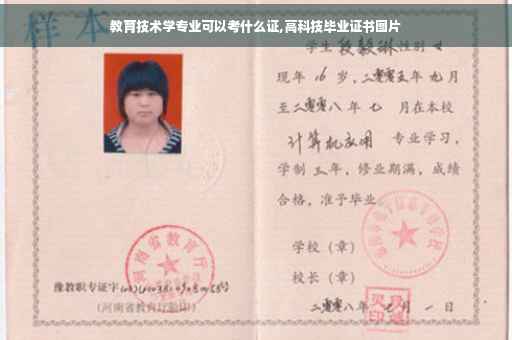 教育技术学专业可以考什么证,高科技毕业证书图片
样本
学生 段毅琳 性别 女
现年 16 岁,二零零五年 九 月
至二零零八年 七 月在本校
计算机应用 专业学习,
学制 三 年,修业期满,成绩
合格,准予毕业
学校(章)
校长(章)
二零零八年 七 月 一 日
河南省教育厅
豫教职专证字
(河南省教育厅验印)